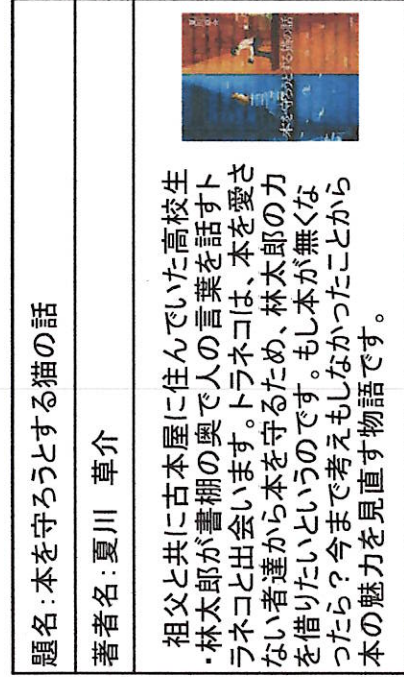 題名:本を守ろうとする猫の話
著者名:夏川 草介
祖父と共に古本屋に住んでいた高校生
・林太郎が書棚の奥で人の言葉を話すト
ラネコと出会います。トラネコは、本を愛さ
ない者達から本を守るため、林太郎の力
を借りたいというのです。もし本が無くな
ったら?今まで考えもしなかったことから
本の魅力を見直す物語です。
本を守ろうとする猫の話
夏川草介